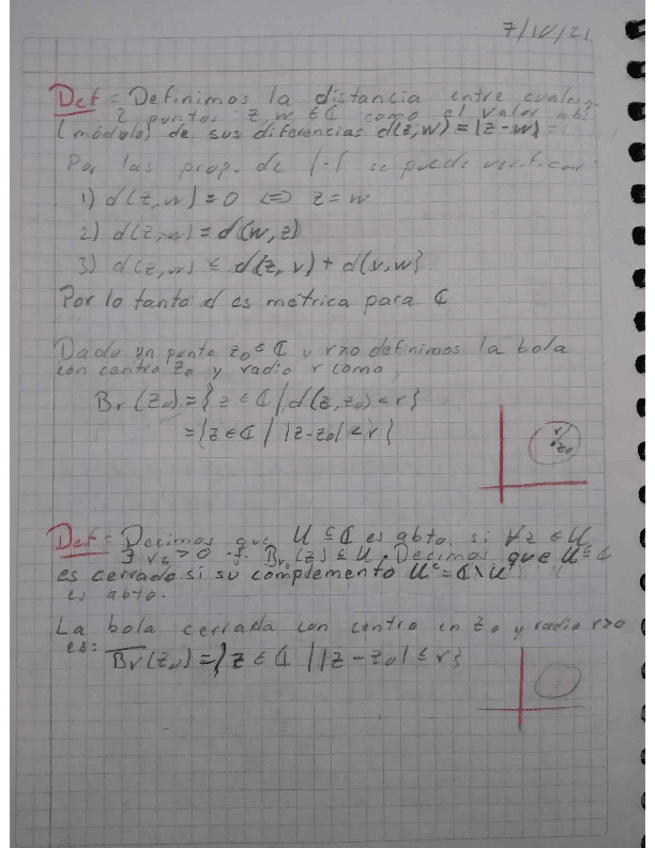 7/10/21
Def = Definimos la distancia entre cualesq.
2 puntos z, w ∈ ℂ como el valor abs
(módulo) de sus diferencias d(z,w) = |z-w|
Por las prop. de |·| se puede verificar:
1) d(z,w) = 0 ⟺ z = w
2) d(z,w) = d(w,z)
3) d(z,w) ≤ d(z,v) + d(v,w)
Por lo tanto d es métrica para ℂ
Dado un punto z₀ ∈ ℂ y r>0 definimos la bola
con centro z₀ y radio r como
Br(z₀) = { z ∈ ℂ | d(z,z₀) < r }
= { z ∈ ℂ | |z-z₀| < r }
r
z₀
Def = Decimos que U ⊆ ℂ es abto. si ∀z ∈ U
∃ rz > 0 t. Brz(z) ⊆ U. Decimos que U ⊆ ℂ
es cerrado si su complemento Uᶜ = ℂ\U
es abto.
La bola cerrada con centro en z₀ y radio r>0
es:
B̅r̅(z₀) = { z ∈ ℂ | |z-z₀| ≤ r }